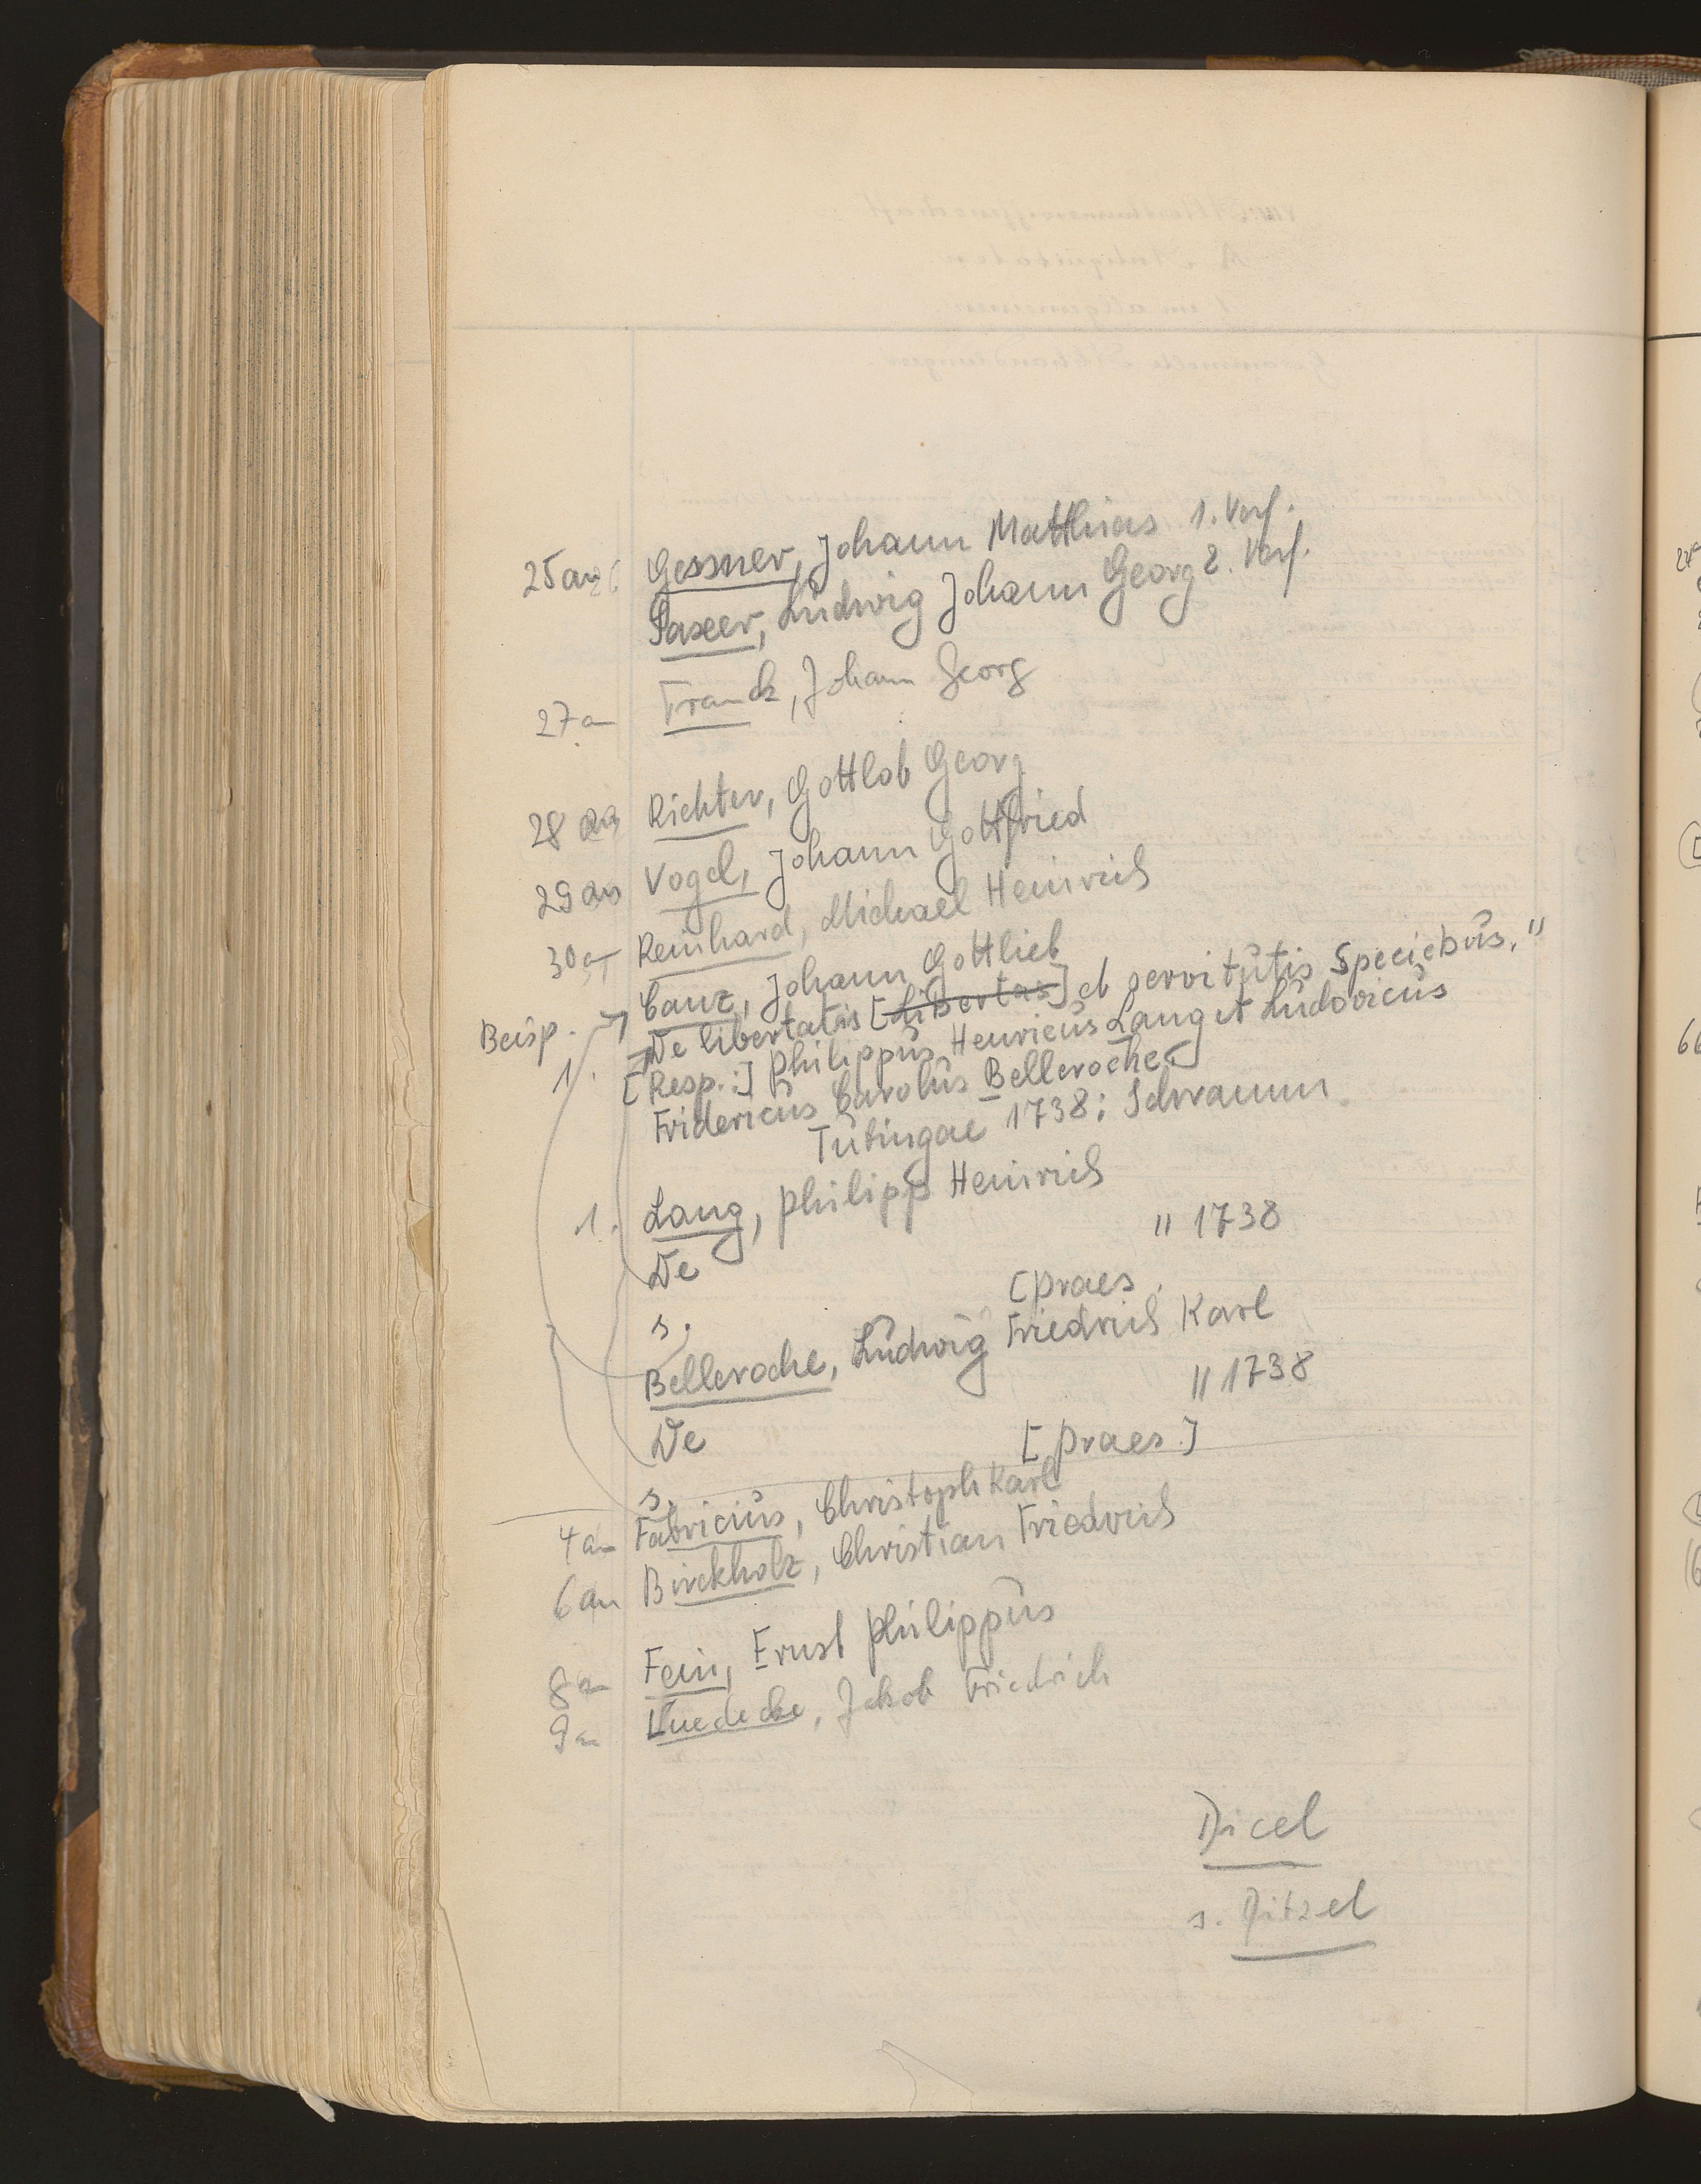 25an Gessner, Johann Matthias 1. Verf.
Paxer, Ludwig Johann Georg 2. Verf.
27a Franck, Johann Georg
28 an Richter, Gottlob Georg
29 an Vogel, Johann Gottfried
30a Reinhard, Michael Heinrich
Beisp. Canz, Johann Gottlieb
1. De libertatis [Libertas] et servitutis Speciebus. "
[Resp.:] Philippus Henricus Lang et Ludovicus
Fridericus Carolus Belleroche.
Tubingae 1738: Schramm.
1. Lang, Philipp Heinrich
De " 1738
s. [Praes.
Belleroche, Ludwig Friedrich Karl
De " 1738
s. [Praes.]
4an Fabricius, Christoph Karl
6an Birckholz, Christian Friedrich
8a Fein, Ernst Philippus
9a Luedecke, Jakob Friedrich
Dicel
s. Ditzel